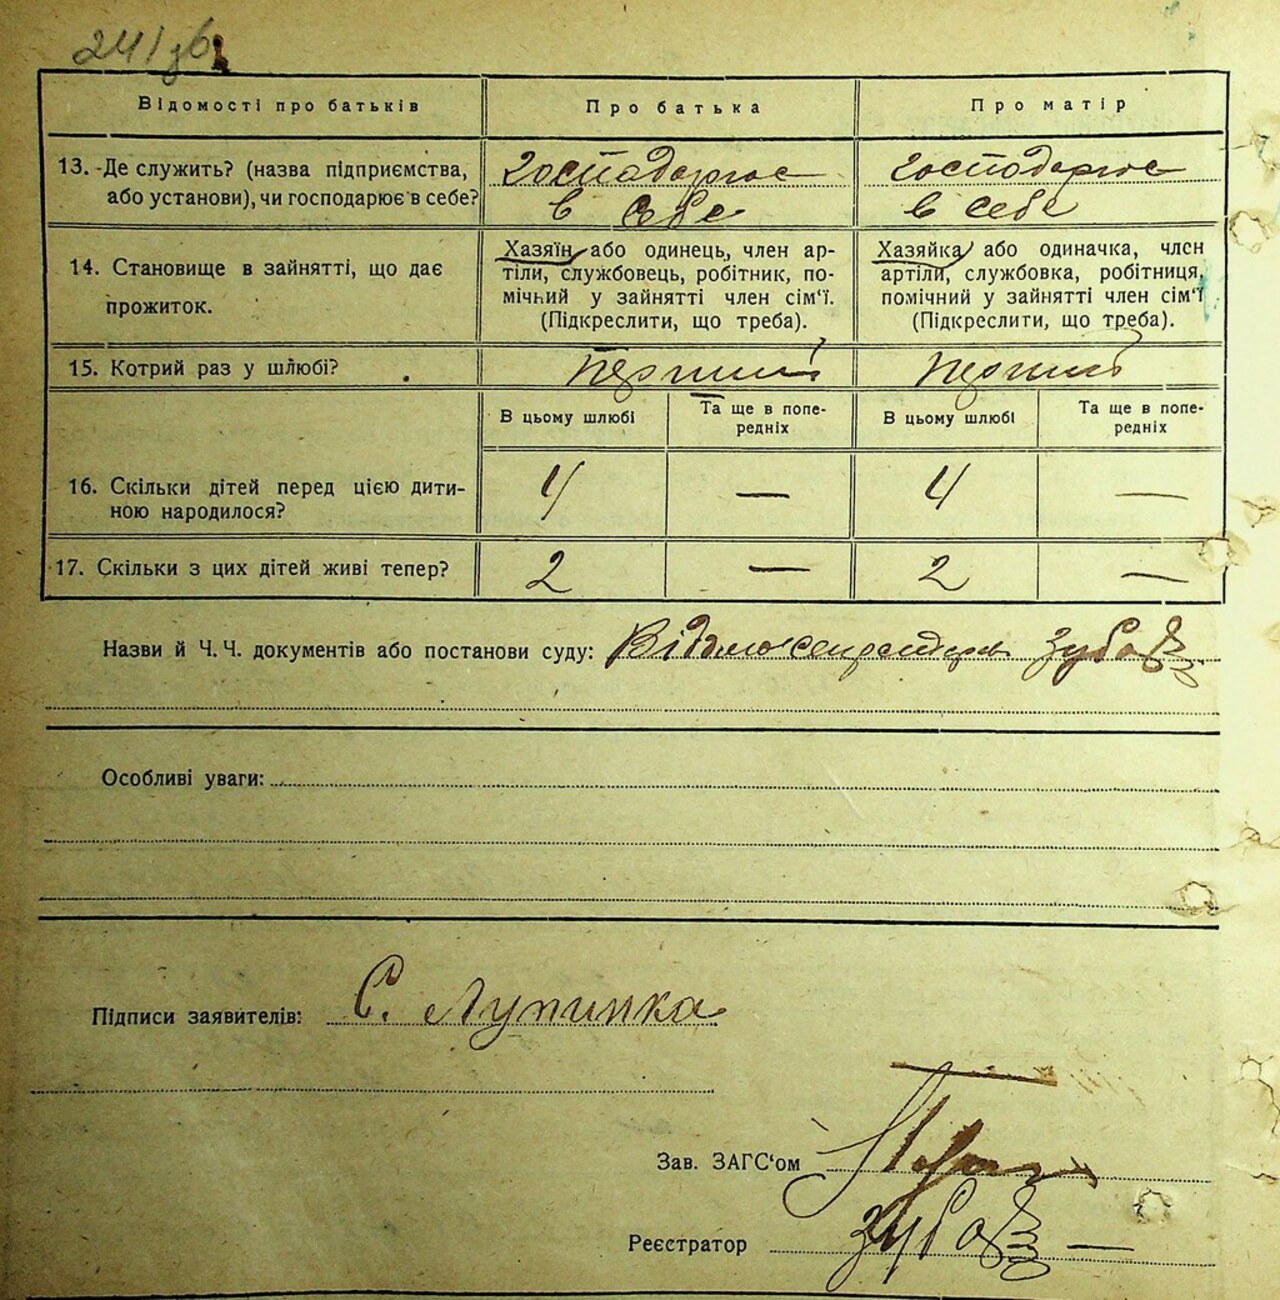 241 зв
Відомості про батьків
Про батька
Про матір
13. Де служить? (назва підприємства,
або установи), чи господарює в себе?
господарює
в себе
господарює
в себе
14. Становище в зайнятті, що дає
прожиток.
Хазяїн або одинець, член ар-
тіли, службовець, робітник, по-
мічний у зайнятті член сім'ї.
(Підкреслити, що треба).
Хазяйка або одиначка, член
артіли, службовка, робітниця,
помічний у зайнятті член сім'ї
(Підкреслити, що треба).
15. Котрий раз у шлюбі?
Перший
Перший
В цьому шлюбі
Та ще в попе-
редніх
В цьому шлюбі
Та ще в попе-
редніх
16. Скільки дітей перед цією дити-
ною народилося?
4
—
4
—
17. Скільки з цих дітей живі тепер?
2
—
2
—
Назви й Ч. Ч. документів або постанови суду: Відомо
Особливі уваги:
Підписи заявителів: С. Лупинка
Зав. ЗАГС'ом
Реєстратор